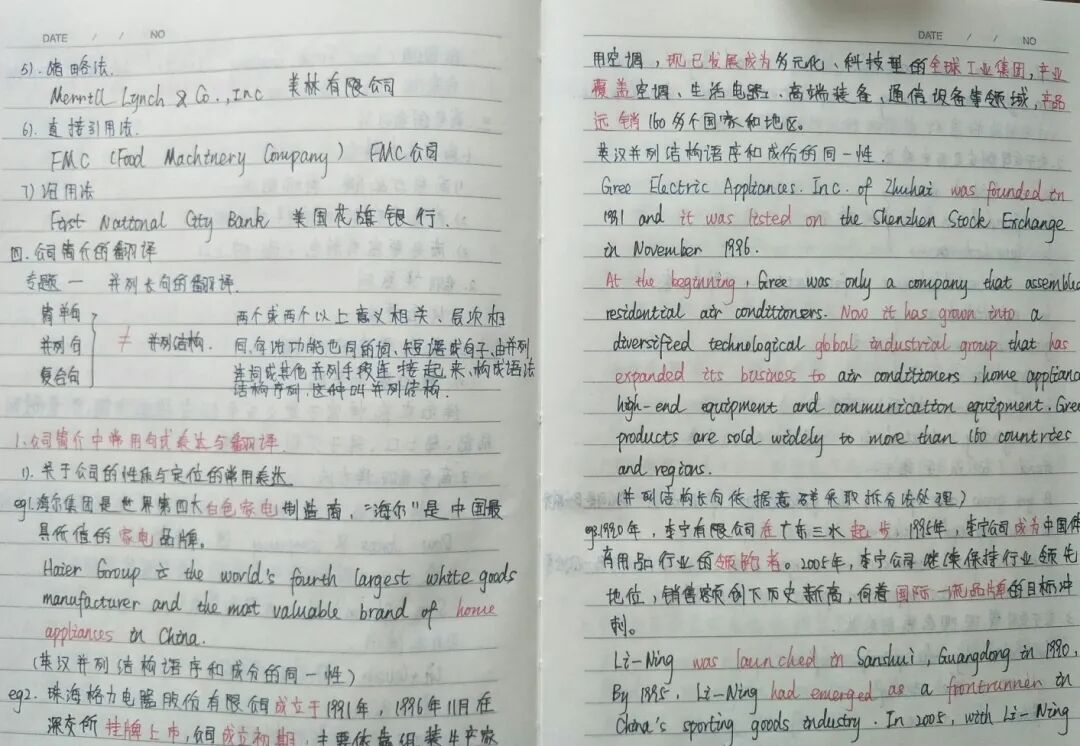 DATE / / NO
5). 缩略法.
Merrill Lynch & Co., Inc 美林有限公司
6). 直接引用法.
FMC (Food Machinery Company) FMC公司
7) 沿用法
First National City Bank 美国花旗银行.
四. 公司简介的翻译
专题一 并列长句的翻译.
简单句
并列句
复合句
≠ 并列结构.
两个或两个以上意义相关、层次相
同,句法功能也同的词、短语或句子,由并列
连词或其他并列手段连接起来,构成语法
结构序列.这种叫并列结构.
1.公司简介中常用句式表达与翻译.
1). 关于公司的性质与定位的常用表达
eg1.海尔集团是世界第四大白色家电制造商,“海尔”是中国最
具价值的家电品牌。
Haier Group is the world's fourth largest white goods
manufacturer and the most valuable brand of home
appliances in China.
(英汉并列结构语序和成分的同一性)
eg2. 珠海格力电器股份有限公司成立于1991年,1996年11月在
深交所挂牌上市,公司成立初期,主要依靠组装生产家
DATE / / NO
用空调,现已发展成为多元化、科技型的全球工业集团,产业
覆盖空调、生活电器、高端装备、通信设备等领域,产品
远销160多个国家和地区。
英汉并列结构语序和成份的同一性.
Gree Electric Appliances. Inc. of Zhuhai was founded in
1991 and it was listed on the Shenzhen Stock Exchange
in November 1996.
At the beginning, Gree was only a company that assembled
residential air conditioners. Now it has grown into a
diversified technological global industrial group that has
expanded its business to air conditioners, home applianc
high-end equipment and communication equipment. Gree
products are sold widely to more than 160 countries
and regions.
(并列结构长句依据意群采取拆分法处理)
eg3.1990年,李宁有限公司在广东三水起步,1995年,李宁公司成为中国体
育用品行业的领跑者。2005年,李宁公司继续保持行业领先
地位,销售额创下历史新高,向着国际一流品牌的目标冲
刺。
Li-Ning was launched in Sanshui, Guangdong in 1990.
By 1995, Li-Ning had emerged as a frontrunner in
China's sporting goods industry. In 2005, with Li-Ning